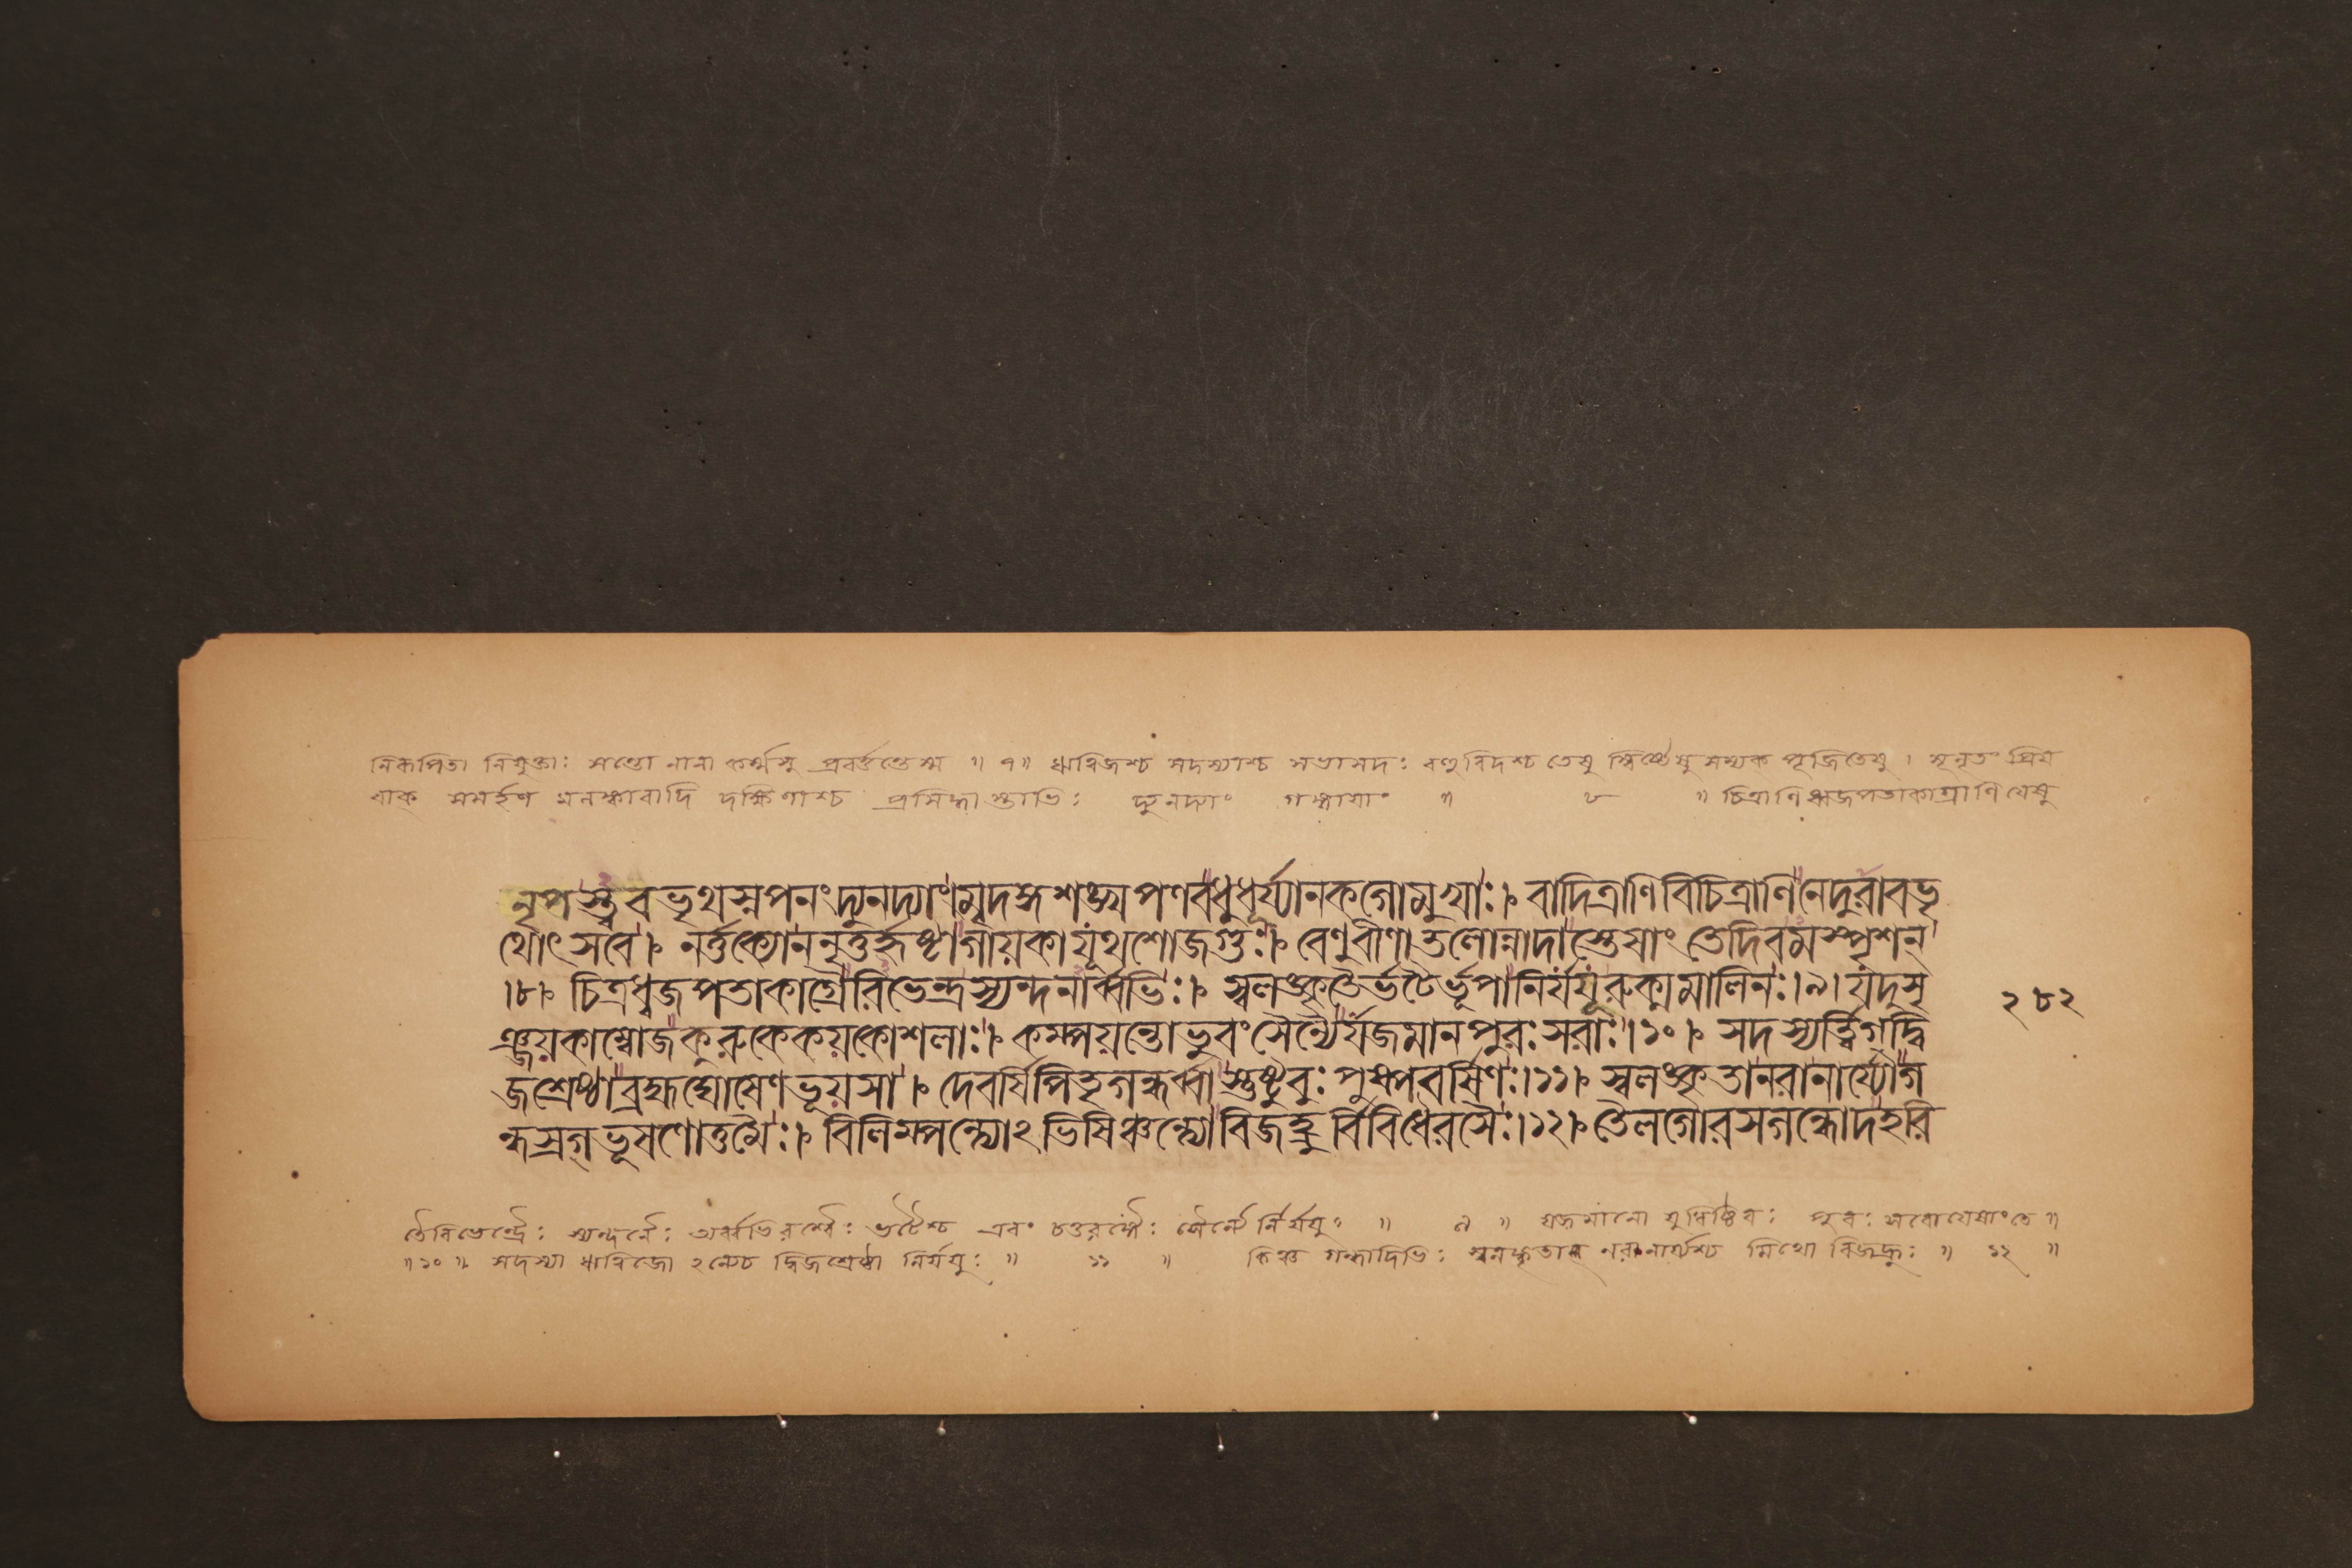 নিরূপিতা নিযুক্তাঃ সন্তো নানা কর্ম্মসু প্রবর্ত্তন্তেস্ম ॥ ৭॥ ঋত্বিজশ্চ সদস্যাশ্চ সভাসদঃ বহুবিদশ্চ তেষু স্বিষ্টেষু সম্যক পূজিতেষু । সূনৃতং প্রিয়
বাক্ সমর্হণ মলঙ্কারাদি দক্ষিণাশ্চ প্রসিদ্ধাস্তাভিঃ দ্যুনদ্যাং গঙ্গায়াং ॥ ৮ ॥ চিত্রাণি ধ্বজপতাকাগ্রাণি যেষু
নৃপস্ত্ববভৃথস্নপনং দ্যুনদ্যাং। মৃদঙ্গ শঙ্খ পণবধুধূর্য্যানকগোমুখাঃ। বাদিত্রাণি বিচিত্রাণি নেদুরাবভৃ
থোৎসবে। নর্ত্তক্যোননৃতুর্হৃষ্টাগায়কাযূথশোজগুঃ। বেণুবীণাতলোন্নাদাস্তেষাং তেদিবমস্পৃশন্
।৮। চিত্রধ্বজপতাকাগ্রৈরিভেন্দ্রস্যন্দনার্ব্বভিঃ। স্বলঙ্কৃতৈর্ভটৈর্ভূপানির্যযূরুক্মমালিনঃ।৯। যদুসৃ
ঞ্জয়কাম্বোজকুরুকেকয়কোশলাঃ। কম্পয়ন্তোভুবং সৈন্যৈর্যজমানপুরঃসরাঃ।১০। সদস্যর্ত্ত্বিগ্দ্বি
জশ্রেষ্ঠাব্রহ্মঘোষেণভূয়সা। দেবর্ষিপিতৃগন্ধর্ব্বাস্তুষ্টুবুঃ পুষ্পবর্ষিণঃ।১১। স্বলঙ্কৃতানরানার্য্যোগ
ন্ধস্রগ্ভূষণোত্তমৈঃ। বিলিম্পন্ত্যোঽভিষিঞ্চন্ত্যোবিজহ্রুর্বিবিধৈরসৈঃ।১২। তৈলগোরসগন্ধোদহরি
২৮২
তৈরিভেন্দ্রৈঃ স্যন্দনৈঃ অর্ব্বভিরশ্বৈঃ ভটৈশ্চ এবং চতুরঙ্গৈঃ সৈন্যৈ র্নির্যযুঃ ॥ ৯ ॥ যজমানো যুধিষ্ঠিরঃ পুরঃসরো যেষাং তে ॥
॥১০॥ সদস্যা ঋত্বিজো ঽন্যেচ দ্বিজশ্রেষ্ঠা নির্যযুঃ ॥ ১১ ॥ কিঞ্চ গন্ধাদিভিঃ স্বলঙ্কৃতাঃ নরানার্য্যশ্চ মিথো বিজহ্রুঃ ॥ ১২ ॥